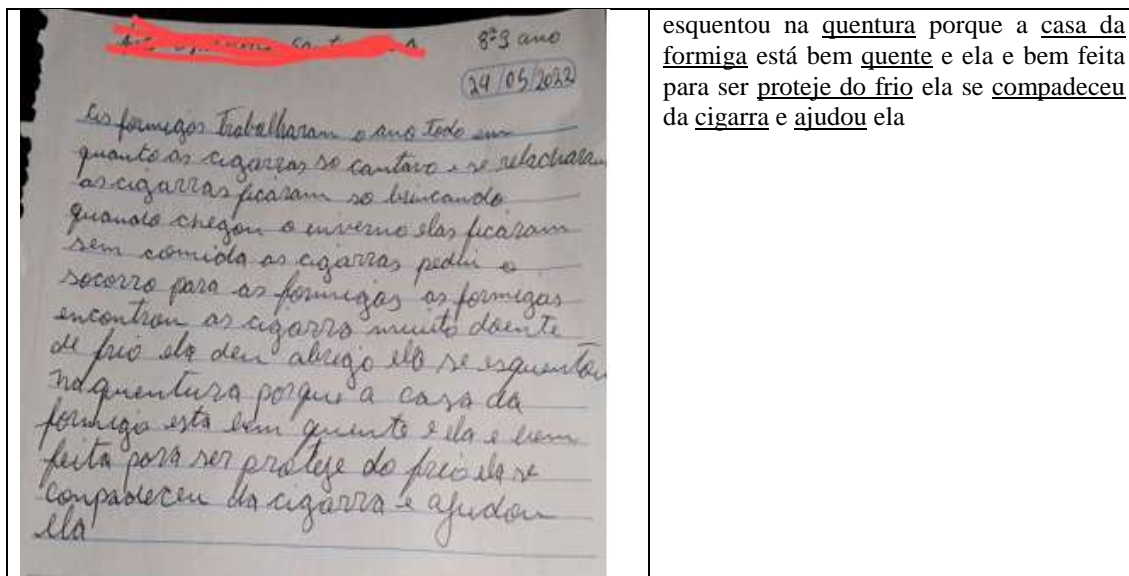 8º3 ano
24/05/2022
As formigas Trabalharam o ano Todo em
quanto as cigarras so cantavo e se relacharam
as cigarras ficaram so brincando
quando chegou o inverno elas ficaram
sem comida as cigarras pediu o
socorro para as formigas as formigas
encontrou as cigarra muito doente
de frio ela deu abrigo ela se esquentou
na quentura porque a casa da
formiga esta bem quente e ela e bem
feita para ser proteje do frio ela se
conpadeceu da cigarra e ajudou
ela
esquentou na quentura porque a casa da
formiga está bem quente e ela e bem feita
para ser proteje do frio ela se compadeceu
da cigarra e ajudou ela